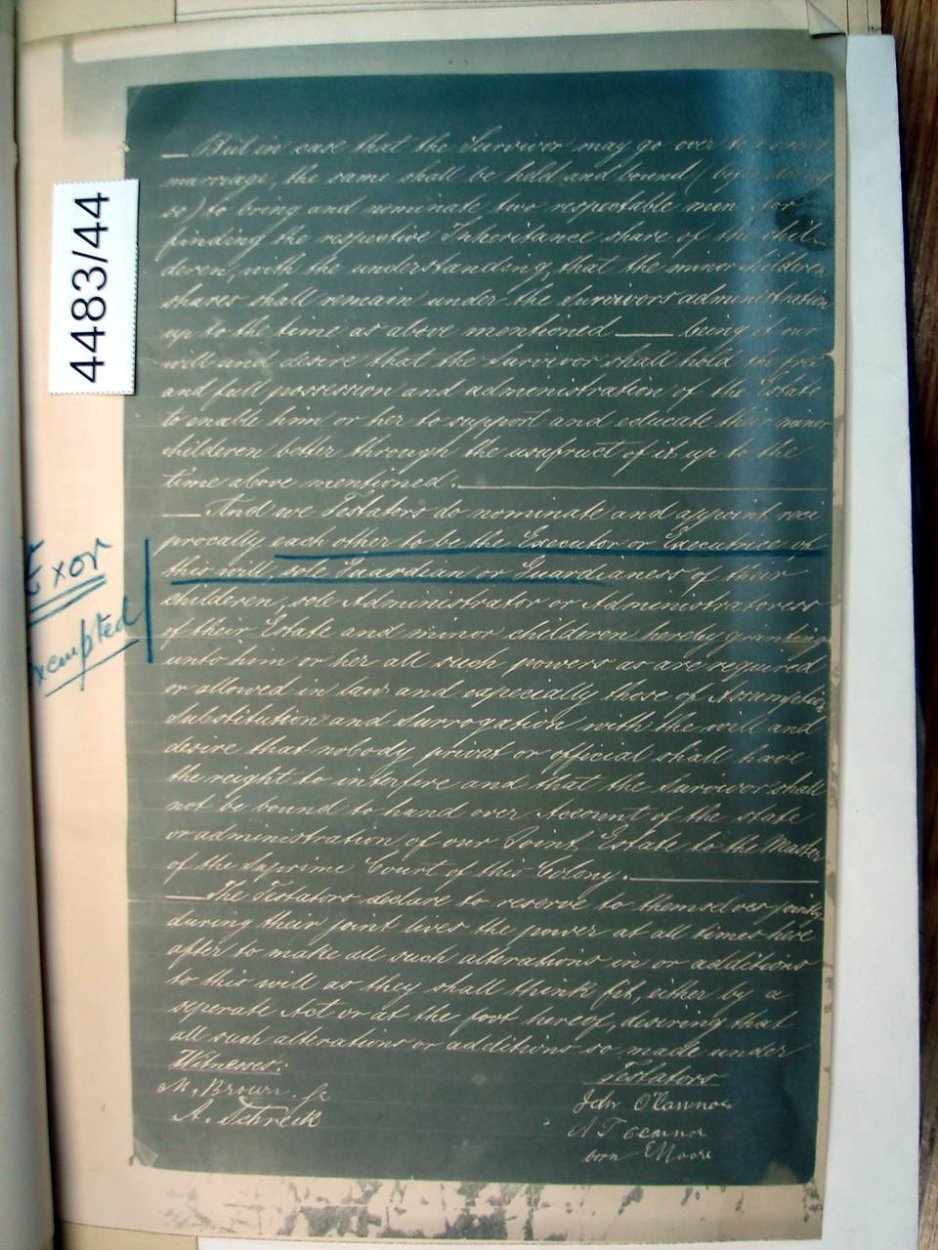 4483/44
But in case that the Survivor may go over to a
marriage, the same shall be held and bound (before doing
so) to bring and nominate two respectable men for
finding the respective Inheritance share of the chil-
deren, with the understanding, that the minor childeren
shares shall remain under the Survivors administration
up to the time as above mentioned — being it our
will and desire that the Survivor shall hold in free
and full possession and administration of the Estate
to enable him or her to support and educate their minor
childeren better through the usufruct of it up to the
time above mentioned.
— And we Testators do nominate and appoint reci
procally each other to be the Executor or Executrice of
this will, sole Guardian or Guardianess of their
childeren, sole Administrator or Administratoress
of their Estate and minor childeren hereby granting
unto him or her all such powers as are required
or allowed in law and especially those of Assumption
Substitution and Surrogation with the will and
desire that nobody privat or official shall have
the reight to interfere and that the Survivor shall
not be bound to hand over Account of the state
or administration of our Joint Estate to the Master
of the Supreme Court of this Colony.
— The Testators declare to reserve to themselves jointly
during their joint lives the power at all times here
after to make all such alterations in or additions
to this will as they shall think fit, either by a
seperate Act or at the foot hereof, desiring that
all such alterations or additions so made under
Witnesses:
Testators
M. Brown
A. Schreik
O'Connor
born Moore
Exor
xempted